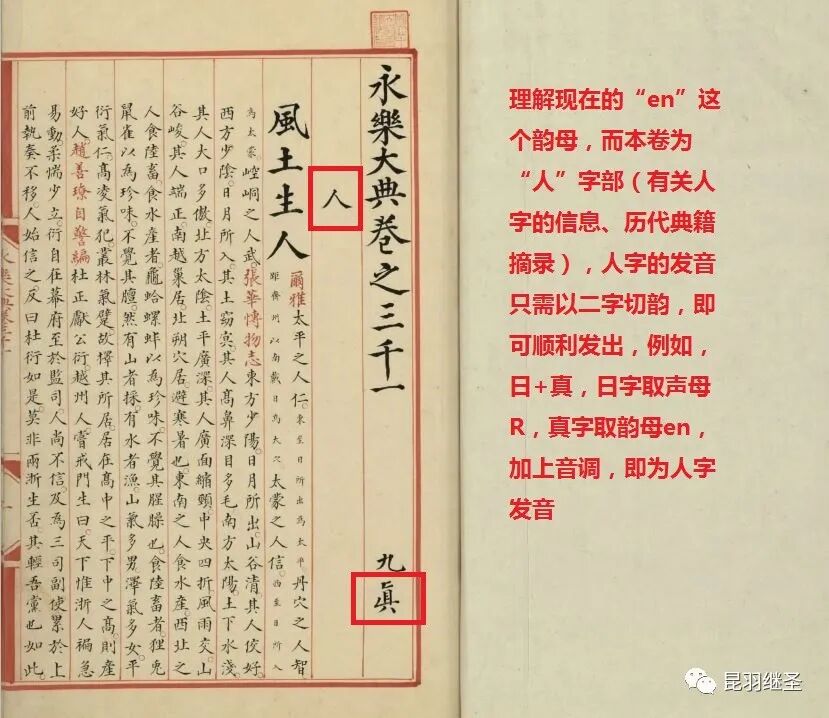 永樂大典卷之三千一 九眞
人
風土生人 爾雅太平之人仁。東至日所出為太平。丹穴之人智
距齊州以南戴日為大穴 太蒙之人信。西至日所入
為太蒙。崆峒之人武。張華博物志東方少陽。日月所出。山谷清。其人佼好。
西方少陰。日月所入。其土窈㝠。其人髙鼻深目多毛。南方太陽。土下水淺
其人大口多傲。北方太陰。土平廣深。其人廣面縮頸。中央四折。風雨交。山
谷峻。其人端正。南越巢居。北朔穴居。避寒暑也。東南之人食水產。西北之
人食陸畜。食水產者。龜蛤螺蚌以為珍味。不覺其腥臊也。食陸畜者。狸兎
鼠雀以為珍味。不覺其膻。然有山者採。有水者漁。山氣多男。澤氣多女。平
衍氣仁。髙凌氣犯。叢林氣躄。故擇其所居。居在髙中之平。下中之髙。則產
好人。趙善璙自警編杜正獻公衍。越州人。嘗戒門生曰。天下惟浙人褊急
易動。柔懦少立。衍自在幕府至於監司。人尚不信。及為三司副使。累於上
前執奏不移。人始信之。反曰杜衍如是。莫非兩浙生否。其輕吾黨也如此
理解现在的“en”这
个韵母，而本卷为
“人”字部（有关人
字的信息、历代典籍
摘录），人字的发音
只需以二字切韵，即
可顺利发出，例如，
日+真，日字取声母
R，真字取韵母en，
加上音调，即为人字
发音
昆羽继圣